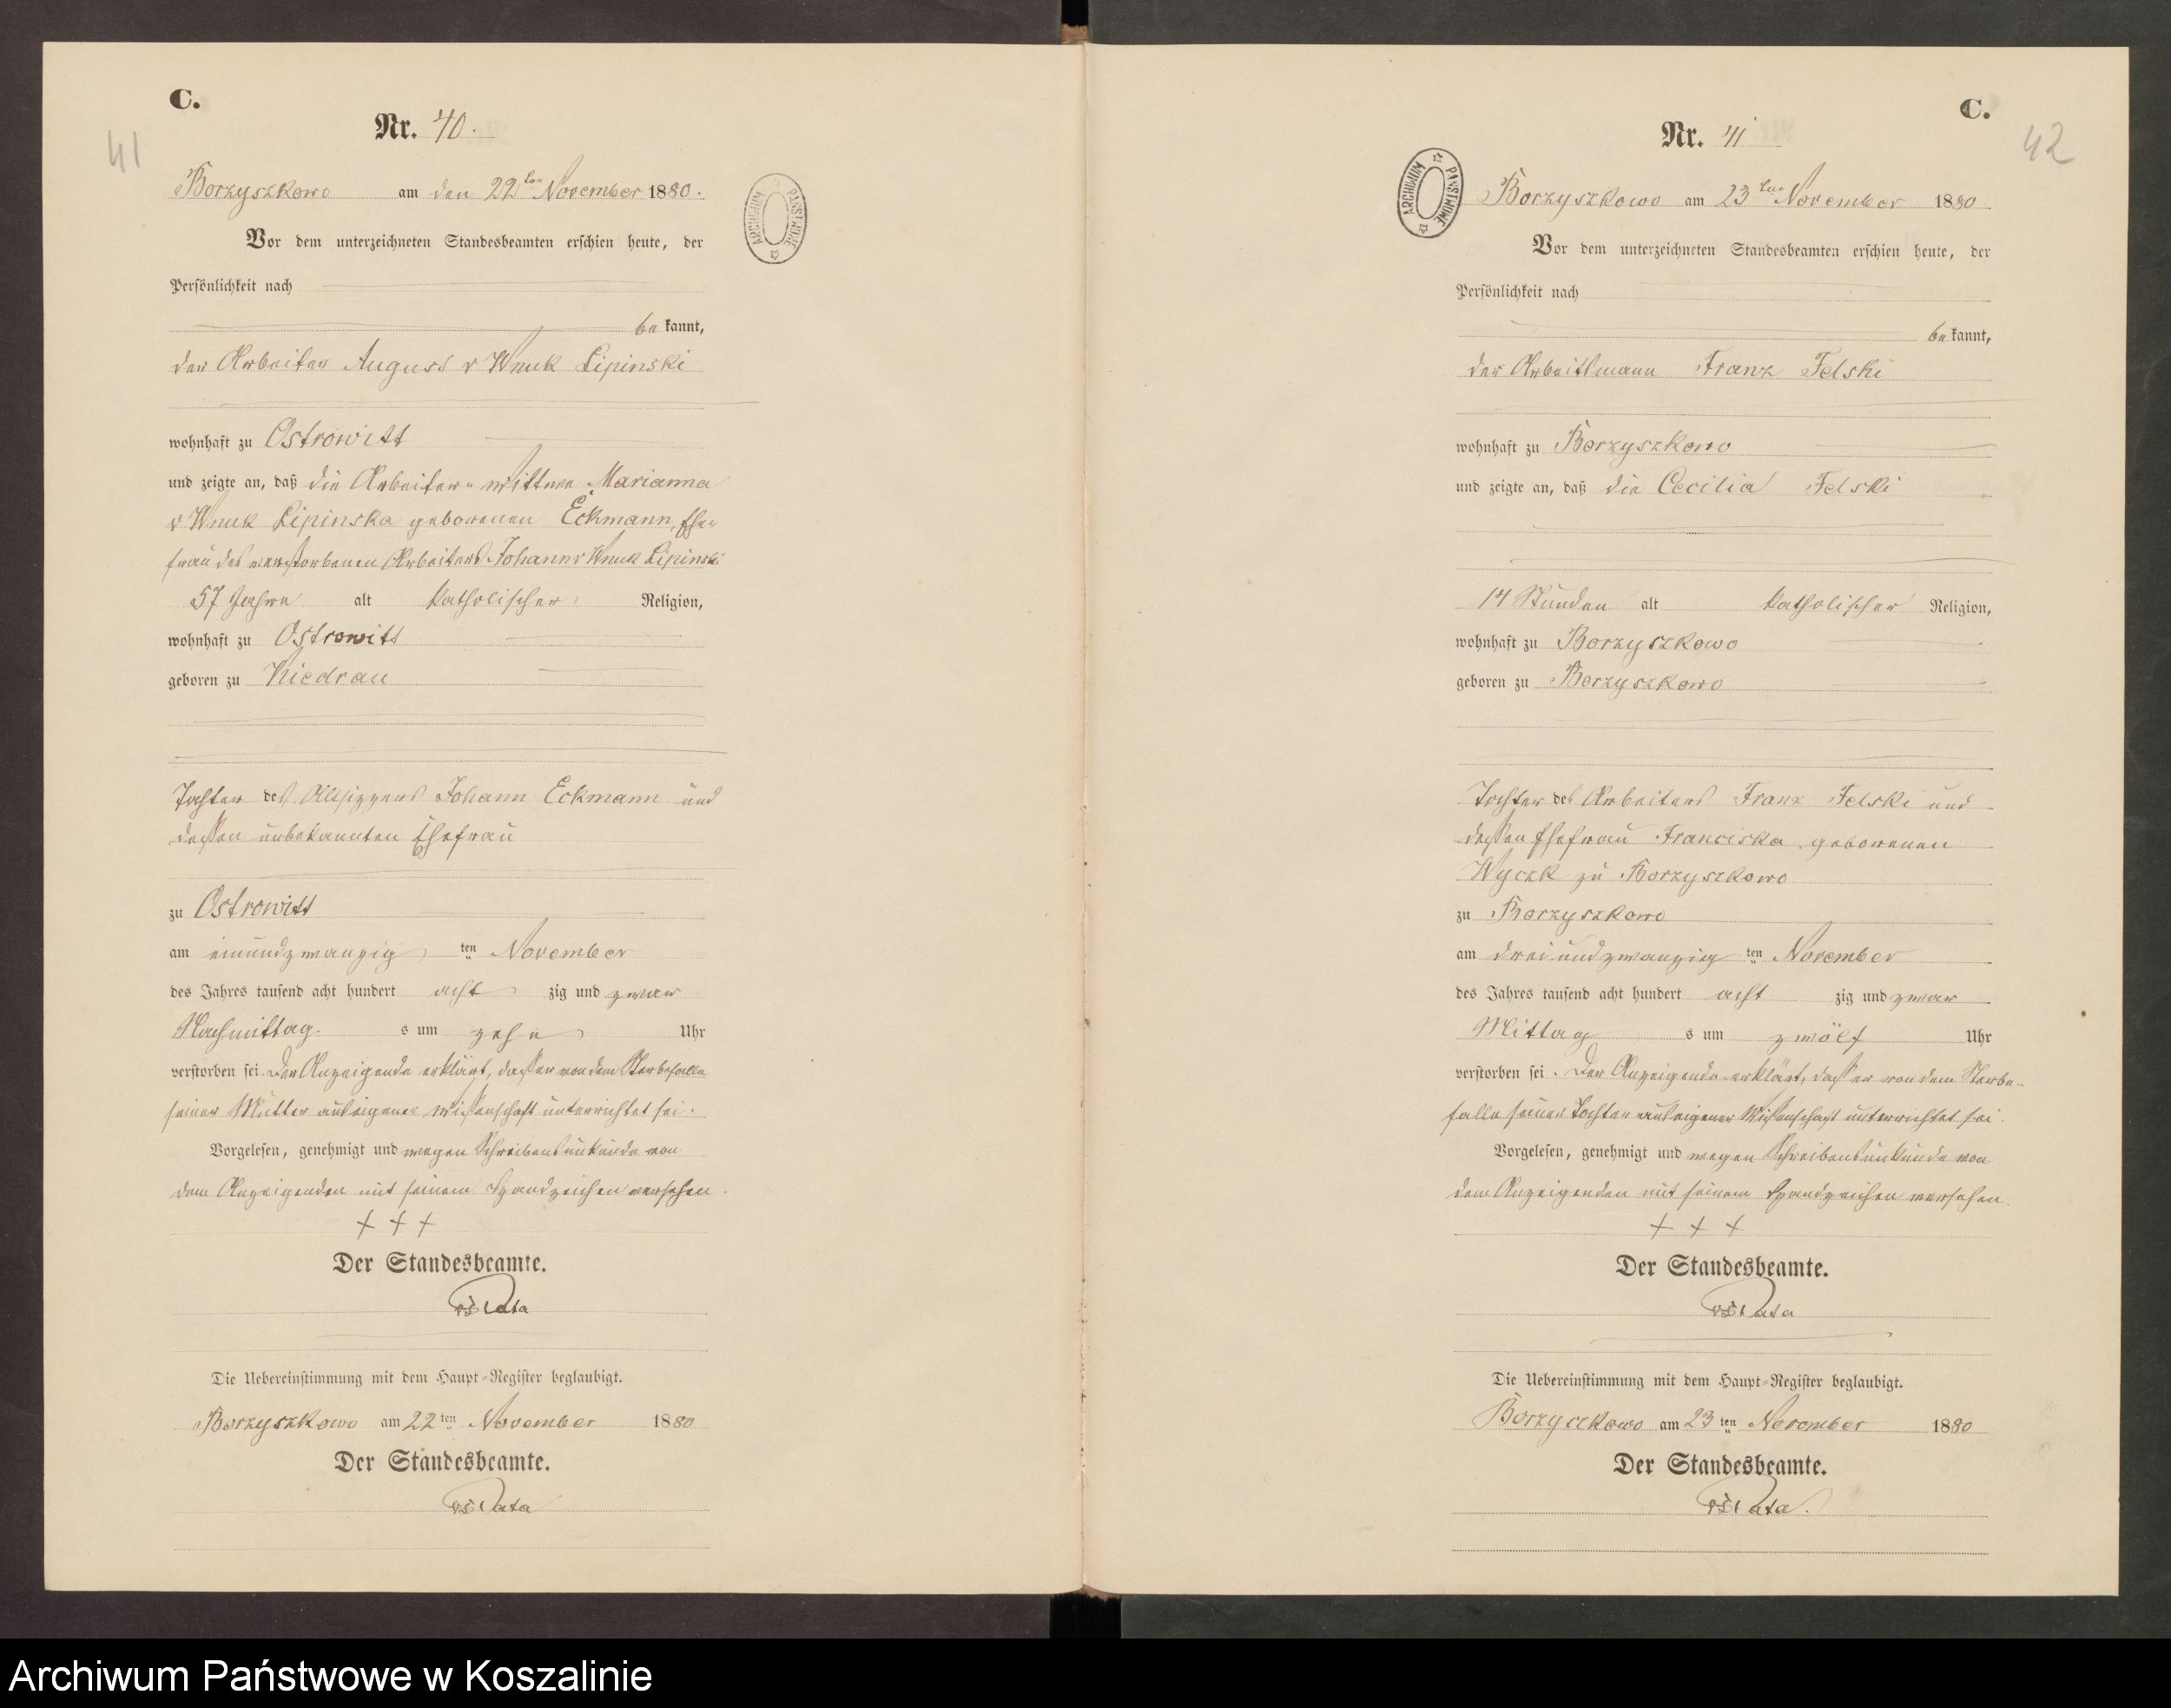 C.
41
Nr. 40.
Borzyszkowo am den 22ten November 1880.
Vor dem unterzeichneten Standesbeamten erschien heute, der
Persönlichkeit nach
bekannt,
der Arbeiter August v Wnuk Lipinski
wohnhaft zu Ostrowitt
und zeigte an, daß die Arbeiter-wittwe Marianna
v Wnuk Lipinska geborenen Eckmann, Ehe-
frau des verstorbenen Arbeiters Johann v Wnuk Lipinski
57 Jahre alt katholischer Religion,
wohnhaft zu Ostrowitt
geboren zu Kiedrau
Tochter des Altsitzers Johann Eckmann und
dessen unbekannten Ehefrau
zu Ostrowitt
am einundzwanzigten November
des Jahres tausend acht hundert achtzig und zwar
Nachmittags um zehn Uhr
verstorben sei. Der Anzeigende erklärt, dasser von dem Sterbefalle
seiner Mutter aus eigener Wissenschaft unterrichtet sei.
Vorgelesen, genehmigt und wegen Schreibensunkunde von
dem Anzeigenden mit seinem Handzeichen versehen.
+ + +
Der Standesbeamte.
Die Uebereinstimmung mit dem Haupt-Register beglaubigt.
Borzyszkowo am 22ten November 1880
Der Standesbeamte.
ARCHIWUM PAŃSTWOWE
C.
42
Nr. 41
ARCHIWUM PAŃSTWOWE
Borzyszkowo am 23ten November 1880
Vor dem unterzeichneten Standesbeamten erschien heute, der
Persönlichkeit nach
bekannt,
der Arbeitsmann Franz Felski
wohnhaft zu Borzyszkowo
und zeigte an, daß die Cecilia Felski
14 Stunden alt katholischer Religion,
wohnhaft zu Borzyszkowo
geboren zu Borzyszkowo
Tochter des Arbeiters Franz Felski und
dessen Ehefrau Franciska geborenen
Wyczk zu Borzyszkowo
zu Borzyszkowo
am dreiundzwanzigten November
des Jahres tausend acht hundert achtzig und zwar
Mittags um zwölf Uhr
verstorben sei. Der Anzeigende erklärt, dass er von dem Sterbe-
falle seiner Tochter aus eigener Wissenschaft unterrichtet sei.
Vorgelesen, genehmigt und wegen Schreibensunkunde von
dem Anzeigenden mit seinem Handzeichen versehen.
+ + +
Der Standesbeamte.
Die Uebereinstimmung mit dem Haupt-Register beglaubigt.
Borzyszkowo am 23ten November 1880
Der Standesbeamte.
Archiwum Państwowe w Koszalinie